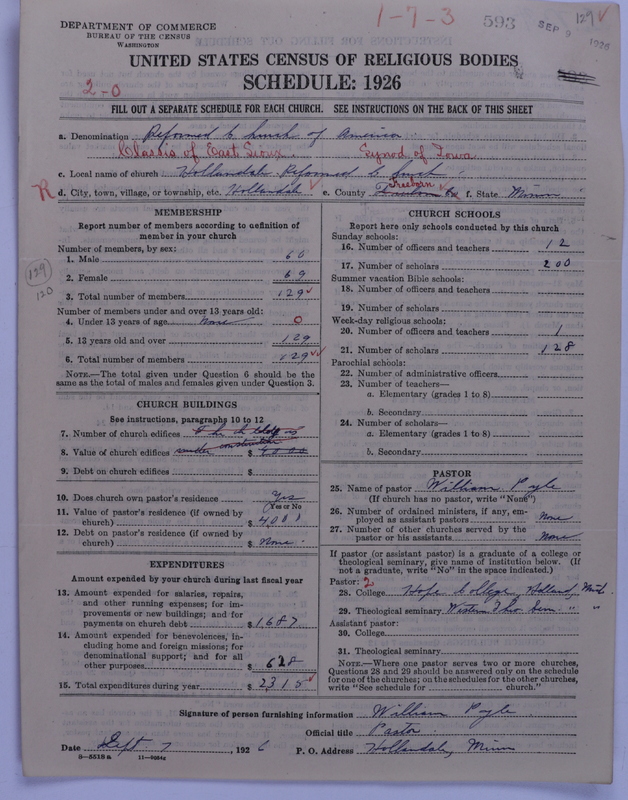 1-7-3
593
SEP 9 1926
129 ✓
DEPARTMENT OF COMMERCE
BUREAU OF THE CENSUS
WASHINGTON
UNITED STATES CENSUS OF RELIGIOUS BODIES
SCHEDULE: 1926
2-0
FILL OUT A SEPARATE SCHEDULE FOR EACH CHURCH. SEE INSTRUCTIONS ON THE BACK OF THIS SHEET
a. Denomination Reformed Church of America
Classis of East Sioux. Synod of Iowa
c. Local name of church Hollandale Reformed Church
R d. City, town, village, or township, etc. Hollandale ✓ e. County Freeborn ✓ f. State Minn
MEMBERSHIP
Report number of members according to definition of
member in your church
Number of members, by sex:
1. Male 60
2. Female 69
3. Total number of members 129 ✓
129
120
Number of members under and over 13 years old:
4. Under 13 years of age None 0
5. 13 years old and over 129
6. Total number of members 129 ✓✓
NOTE.—The total given under Question 6 should be the
same as the total of males and females given under Question 3.
CHURCH BUILDINGS
See instructions, paragraphs 10 to 12
7. Number of church edifices
8. Value of church edifices under construction $
9. Debt on church edifices $
10. Does church own pastor's residence Yes
(Yes or No)
11. Value of pastor's residence (if owned by
church) $ 4000
12. Debt on pastor's residence (if owned by
church) $ None
EXPENDITURES
Amount expended by your church during last fiscal year
13. Amount expended for salaries, repairs,
and other running expenses; for im-
provements or new buildings; and for
payments on church debt $ 1,687
14. Amount expended for benevolences, in-
cluding home and foreign missions; for
denominational support; and for all
other purposes $ 628
15. Total expenditures during year $ 2315 ✓
CHURCH SCHOOLS
Report here only schools conducted by this church
Sunday schools:
16. Number of officers and teachers 12
17. Number of scholars 200
Summer vacation Bible schools:
18. Number of officers and teachers
19. Number of scholars
Week-day religious schools:
20. Number of officers and teachers 1
21. Number of scholars 128
Parochial schools:
22. Number of administrative officers
23. Number of teachers—
a. Elementary (grades 1 to 8)
b. Secondary
24. Number of scholars—
a. Elementary (grades 1 to 8)
b. Secondary
PASTOR
25. Name of pastor William Pyle
(If church has no pastor, write "None")
26. Number of ordained ministers, if any, em-
ployed as assistant pastors None
27. Number of other churches served by the
pastor or his assistants None
If pastor (or assistant pastor) is a graduate of a college or
theological seminary, give name of institution below. (If
not a graduate, write "No" in the space indicated.)
Pastor: 2
28. College Hope College, Holland, Mich.
29. Theological seminary Western Theo Sem. " "
Assistant pastor:
30. College
31. Theological seminary
NOTE.—Where one pastor serves two or more churches,
Questions 28 and 29 should be answered only on the schedule
for one of the churches; on the schedules for the other churches,
write "See schedule for church."
Signature of person furnishing information William Pyle
Official title Pastor
Date Sept 7, 1926 P. O. Address Hollandale, Minn
8—5518 a 11—9954z